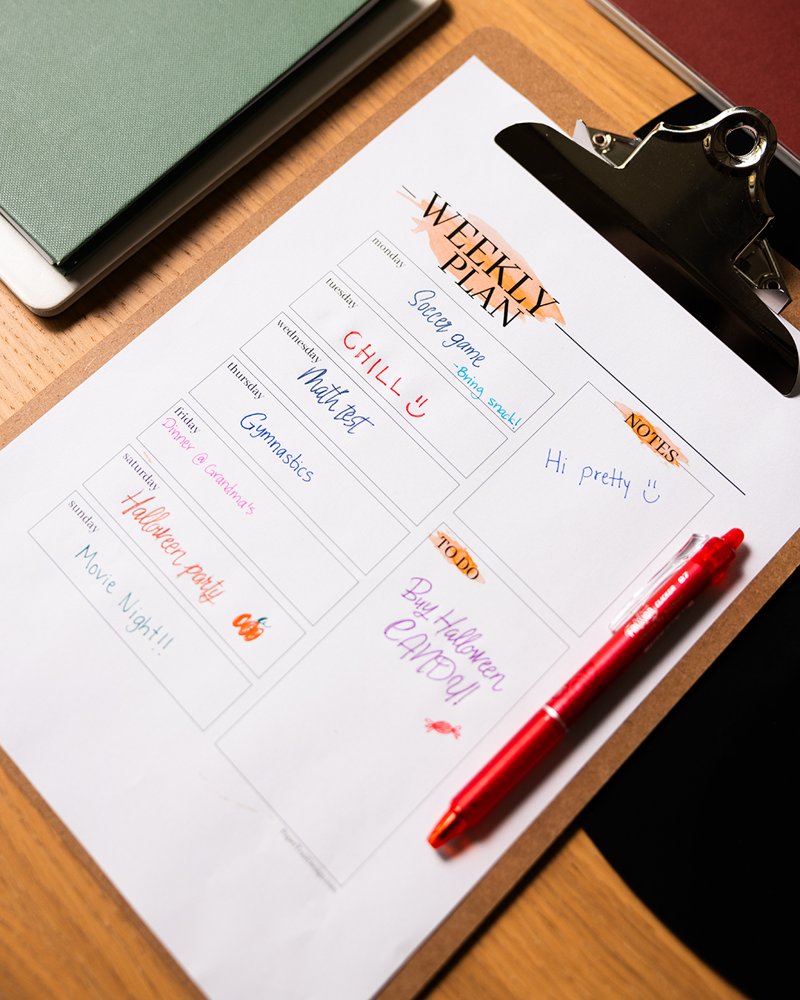 WEEKLY
PLAN
monday
Soccer game
-Bring snack!
tuesday
CHILL
wednesday
Math test
thursday
Gymnastics
friday
Dinner @ Grandma's
saturday
Halloween party
sunday
Movie Night!!
NOTES
Hi pretty
TO DO
Buy Halloween
CANDY!